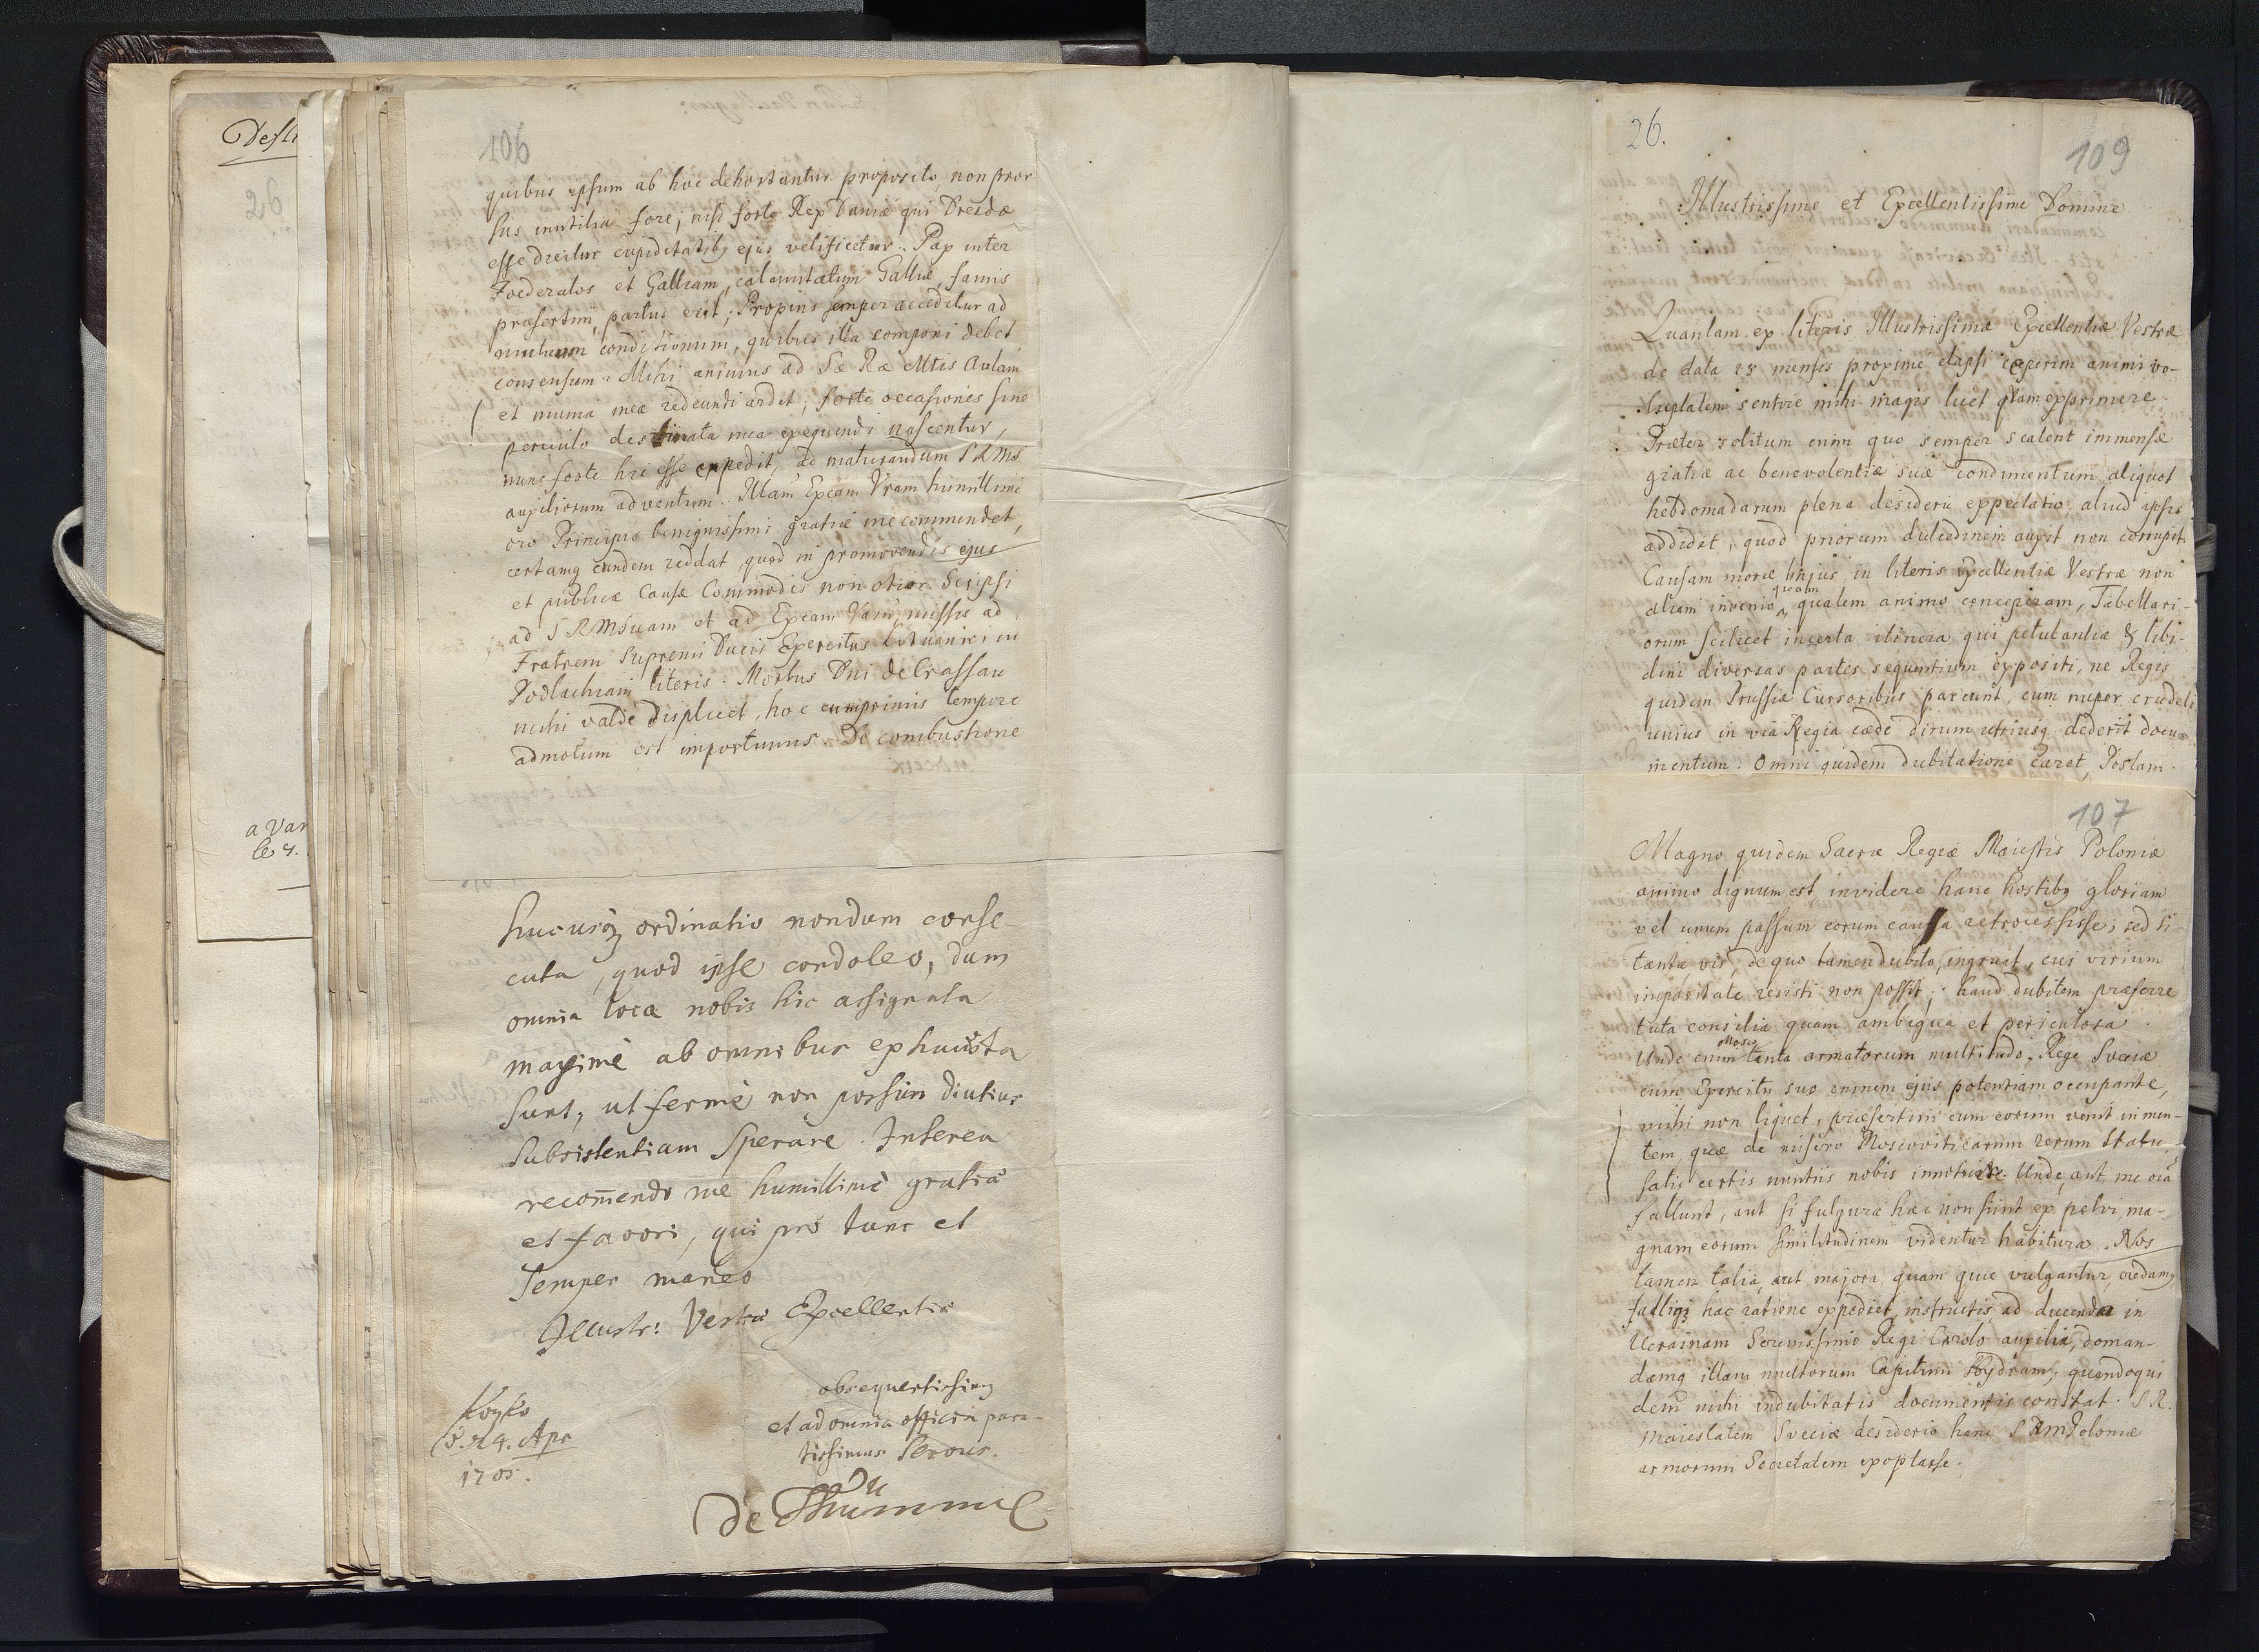 Dest
26
a Var
le 4.
106
quibus ipsum ab hoc dehortantur proposito, non pror
sus inutilia fore; nisi forte Rex Daniæ qui Dresdæ
esse dicitur cupiditatibq ejus velificetur. Pax inter
Foederatos et Galliam, calamitatum Galliæ, famis
præsertim, partus erit; Propius semper acceditur ad
mutuum conditionum, quibus illa componi debet
consensum. Mihi animus ad Sæ Ræ Mtis Aulam
et munia mea redeundi ardet; forte occasiones sine
periculo destinata mea exequendi nascentur,
nunc forte hic esse expedit, ad maturandum SRMS
auxiliorum adventum. Illam Excam Vram humillime
oro Principis benignissimi gratiæ me commendet,
certumq eundem reddat, quod in promovendis ejus
et publicæ Causæ Commodis non otior. Scripsi
ad SRMSuam et ad Excam Vram, missis ad
Fratrem Supremi Ducis Exercitus Lituanici in
Podlachiam literis. Morbus Dni de Crassau
mihi valde displicet, hoc cumprimis tempore
admotum est importunus. De combustione
hucusq ordinatio nondum conse-
cuta, quod ipse condoleo, dum
omnia loca nobis hic assignata
maxime ab omnibus exhausta
sunt, ut ferme non possim diutius
subsistentiam sperare. Interea
recomendo me humillimè gratiæ
et favori, qui pro tunc et
semper maneo
Illustr: Vestræ Excellentiæ
obsequentissimq
et ad omnia officia para-
tissimus Servus.
24. Apr
1705.
de Thümmel
26.
109
Illustrissime et Excellentissime Domine
Quantam ex literis Illustrissimæ Excellentiæ Vestræ
de data 18 mensis proxime elapsi ceperim animi vo-
luptatem sentire mihi magis licet quam exprimere
Præter solitum enim quo semper scatent immensæ
gratiæ ac benevolentiæ suæ condimentum aliquot
hebdomadarum plena desiderii expectatio, aliud ipsis
addidit, quod priorum dulcedinem auxit non corrupit.
Causam moræ hujus, in literis Excellentiæ Vestræ non
aliam invenio quam qualem animo conceperam, Tabellari-
orum scilicet incerta itinera qui petulantiæ & libi-
dini diversas partes sequentium expositi, ne Regis
quidem Prussiæ Cursoribus parcunt, cum nuper crudeli
unius in via Regia cæde dirum utriusq dederit docu-
mentum. Omni quidem dubitatione caret, Postam
107
Magno quidem Sacræ Regiæ Maiestis Poloniæ
animo dignum est, invidere hanc hostibq gloriam
vel unum passum eorum caussa retrocessisse; sed si
tanta vis, de quo tamen dubito, ingruat, cui virium
imparitate resisti non possit; haud dubitem præferre
tuta consilia quam ambigua et periculosa.
Unde enim Mosco tanta armatorum multitudo, Rege Sveciæ
cum Exercitu suo omnem ejus potentiam occupante,
mihi non liquet, præsertim cum eorum venit in men-
tem, quæ de misero Moscoviticarum rerum statu,
satis certis nuntiis nobis innotuere. Unde, aut me oia
fallunt, aut si fulgura hæc non sunt ex pelvi, ma-
gnam eorum similitudinem videntur habitura. Nos
tamen talia, aut majora, quam quæ vulgantur, credamq
falliq; hac ratione expediet, instructis ad ducenda in
Ucrainam Serenissimo Regi Carolo auxilia, doman-
damq illam multorum Capitum Hydram, quandoqui
dem mihi indubitatis documentis constat. S. R.
Maiestatem Sveciæ desiderio hanc S R M Poloniæ
armorum Societatem expoptasse.